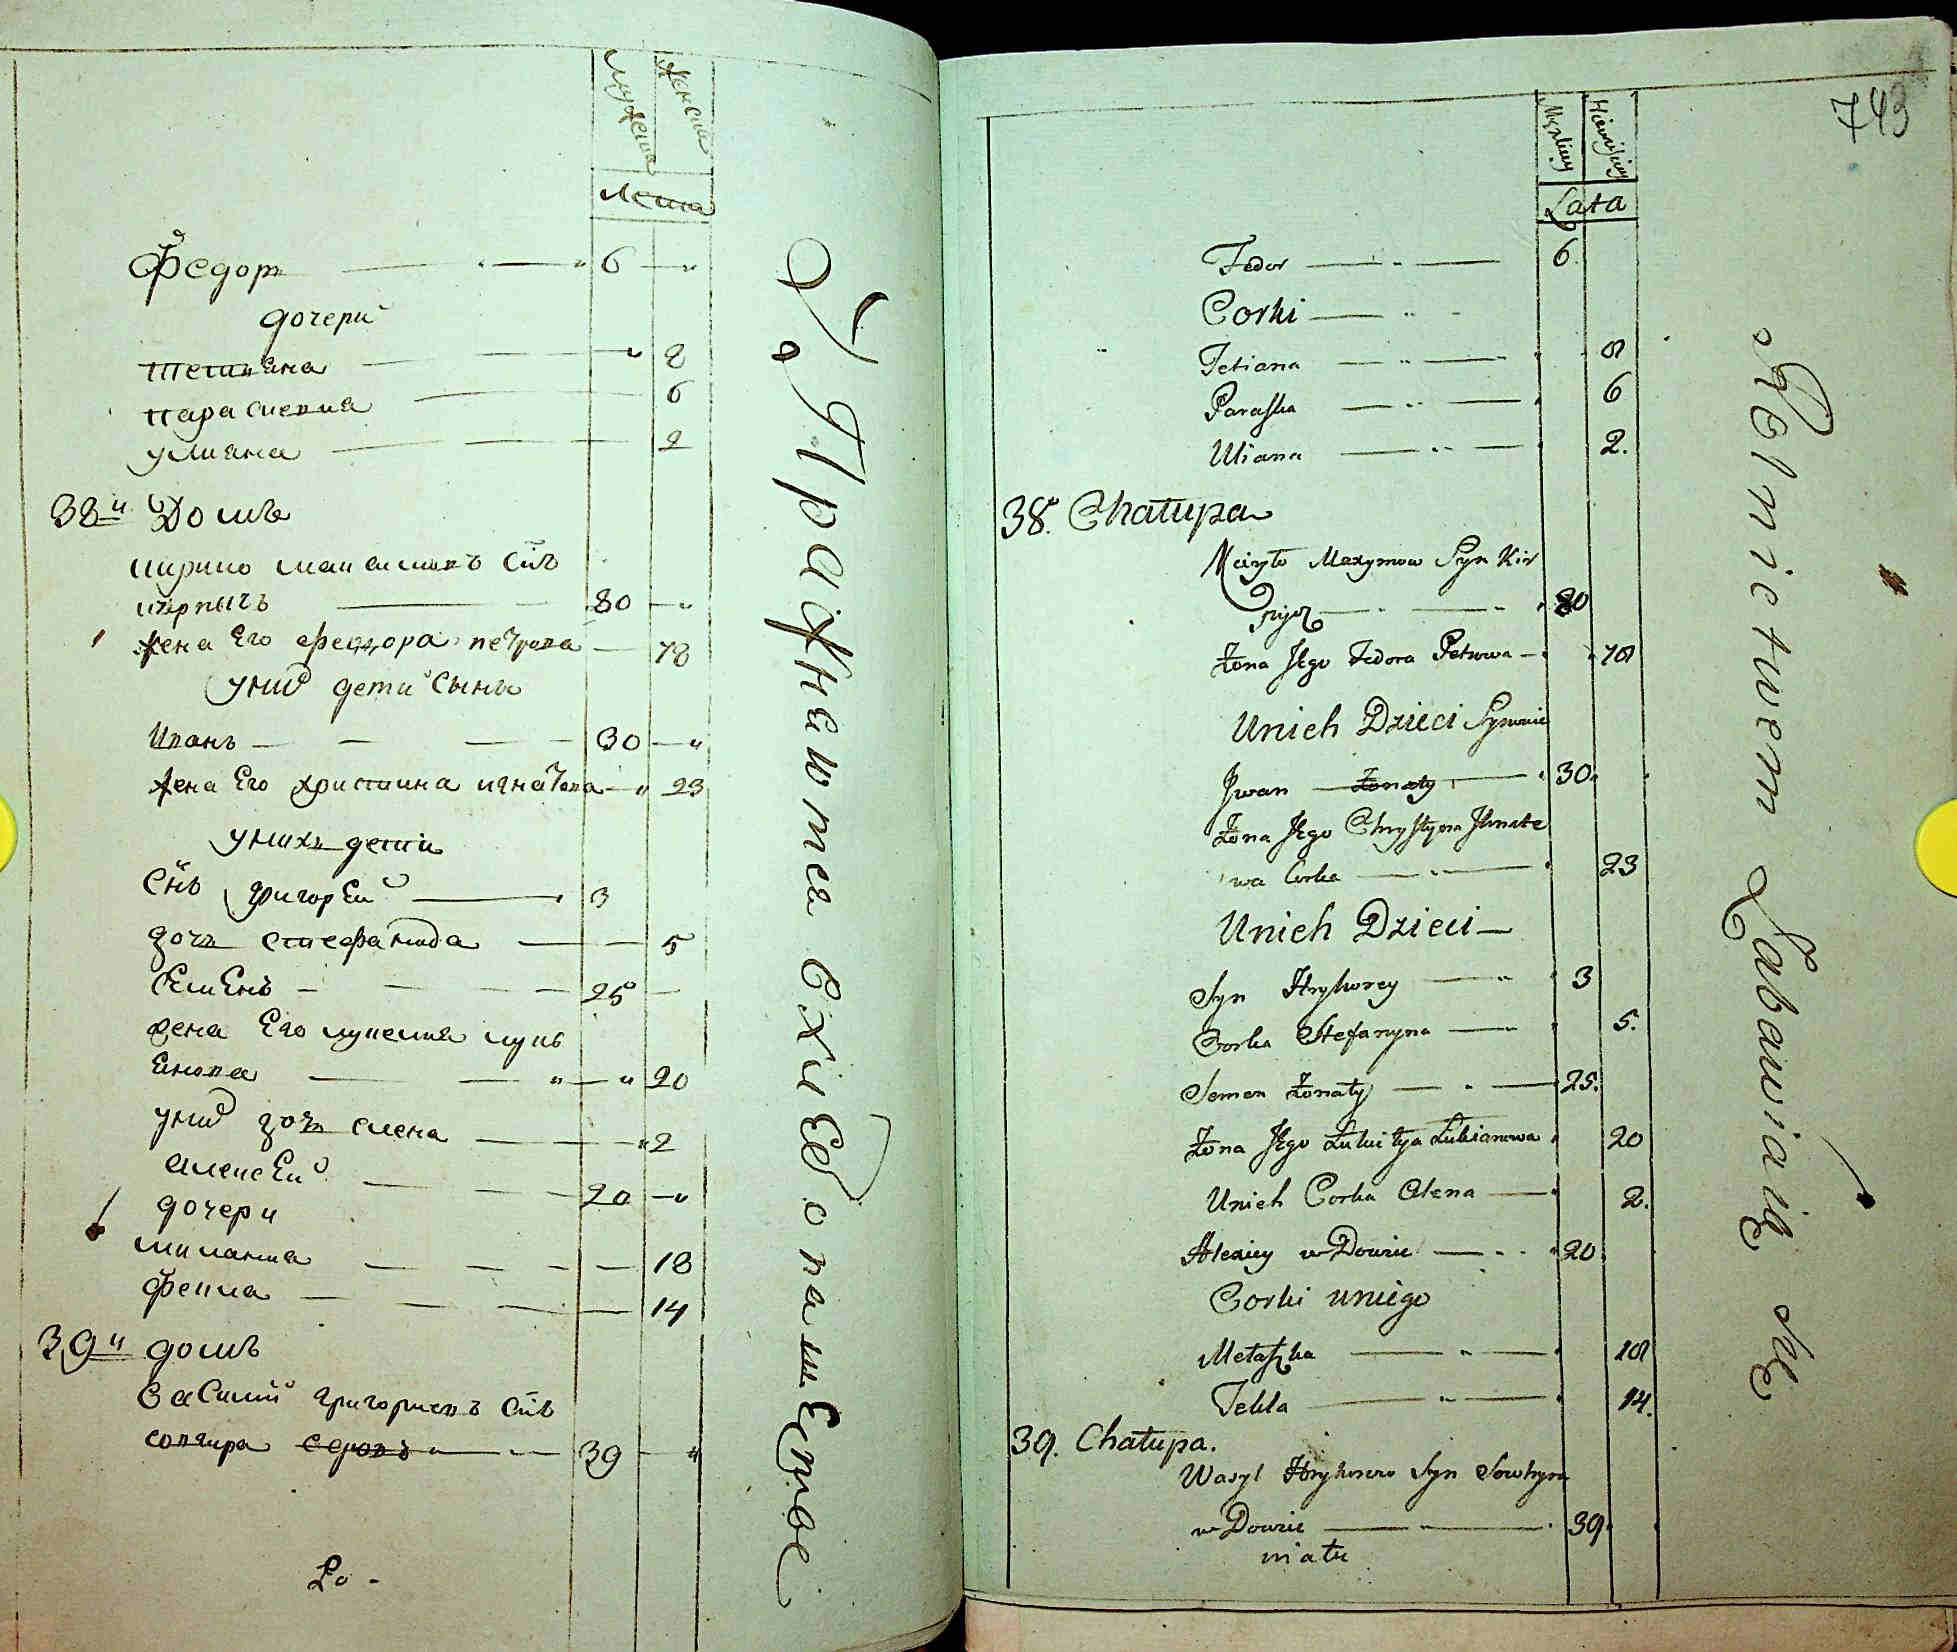 мужеска женска
лета
Федоръ 6
дочери
тетияна 8
параскевия 6
улияна 2
38й Домъ
кирило максимовъ снъ
кирпычъ 80
жена Его феодора петрова 78
уних дети сыны
Иванъ 30
жена Его христина игнатова 23
унихъ дети
Снъ григорЕй 3
дочъ стефанида 5
СемЕнъ 25
жена Его лукелия лукъ
Енова 20
уних дочъ елена 2
алексЕй 20
дочери
милания 18
фекла 14
39й домъ
Василий григориевъ снъ
совкира вдовъ 39
Упражняются вхлебопашЕстве
743
Męzkiey Żienskiey
Lata
Fedor 6
Corki
Tetiana 8
Paraska 6
Uliana 2.
38. Chatupa
Kiryło Maxymow Syn Kir
pycz 80
Żona Jego Fedora Petrowa 78
Unich Dzieci Synowie
Jwan żonaty 30.
Żona Jego Chrystyna Jhnate
wa Corka 23
Unich Dzieci
Syn Hryhorey 3
Corka Stefanyna 5.
Semen żonaty 25.
Żona Jego Łukiłya Łukianowa 20
Unich Corka Olena 2.
Alexiey wDowiec 20
Corki uniego
Melaszka 18
Tekla 14.
39. Chatupa.
Wasyl Hryhorow Syn Sowkyra
wDowiec 39
matu
Rolnictwem Zabawiaią się